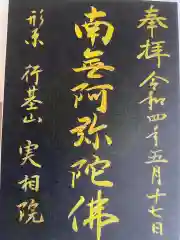 奉拝 令和四年五月十七日
南無阿弥陀佛
行基山 実相院